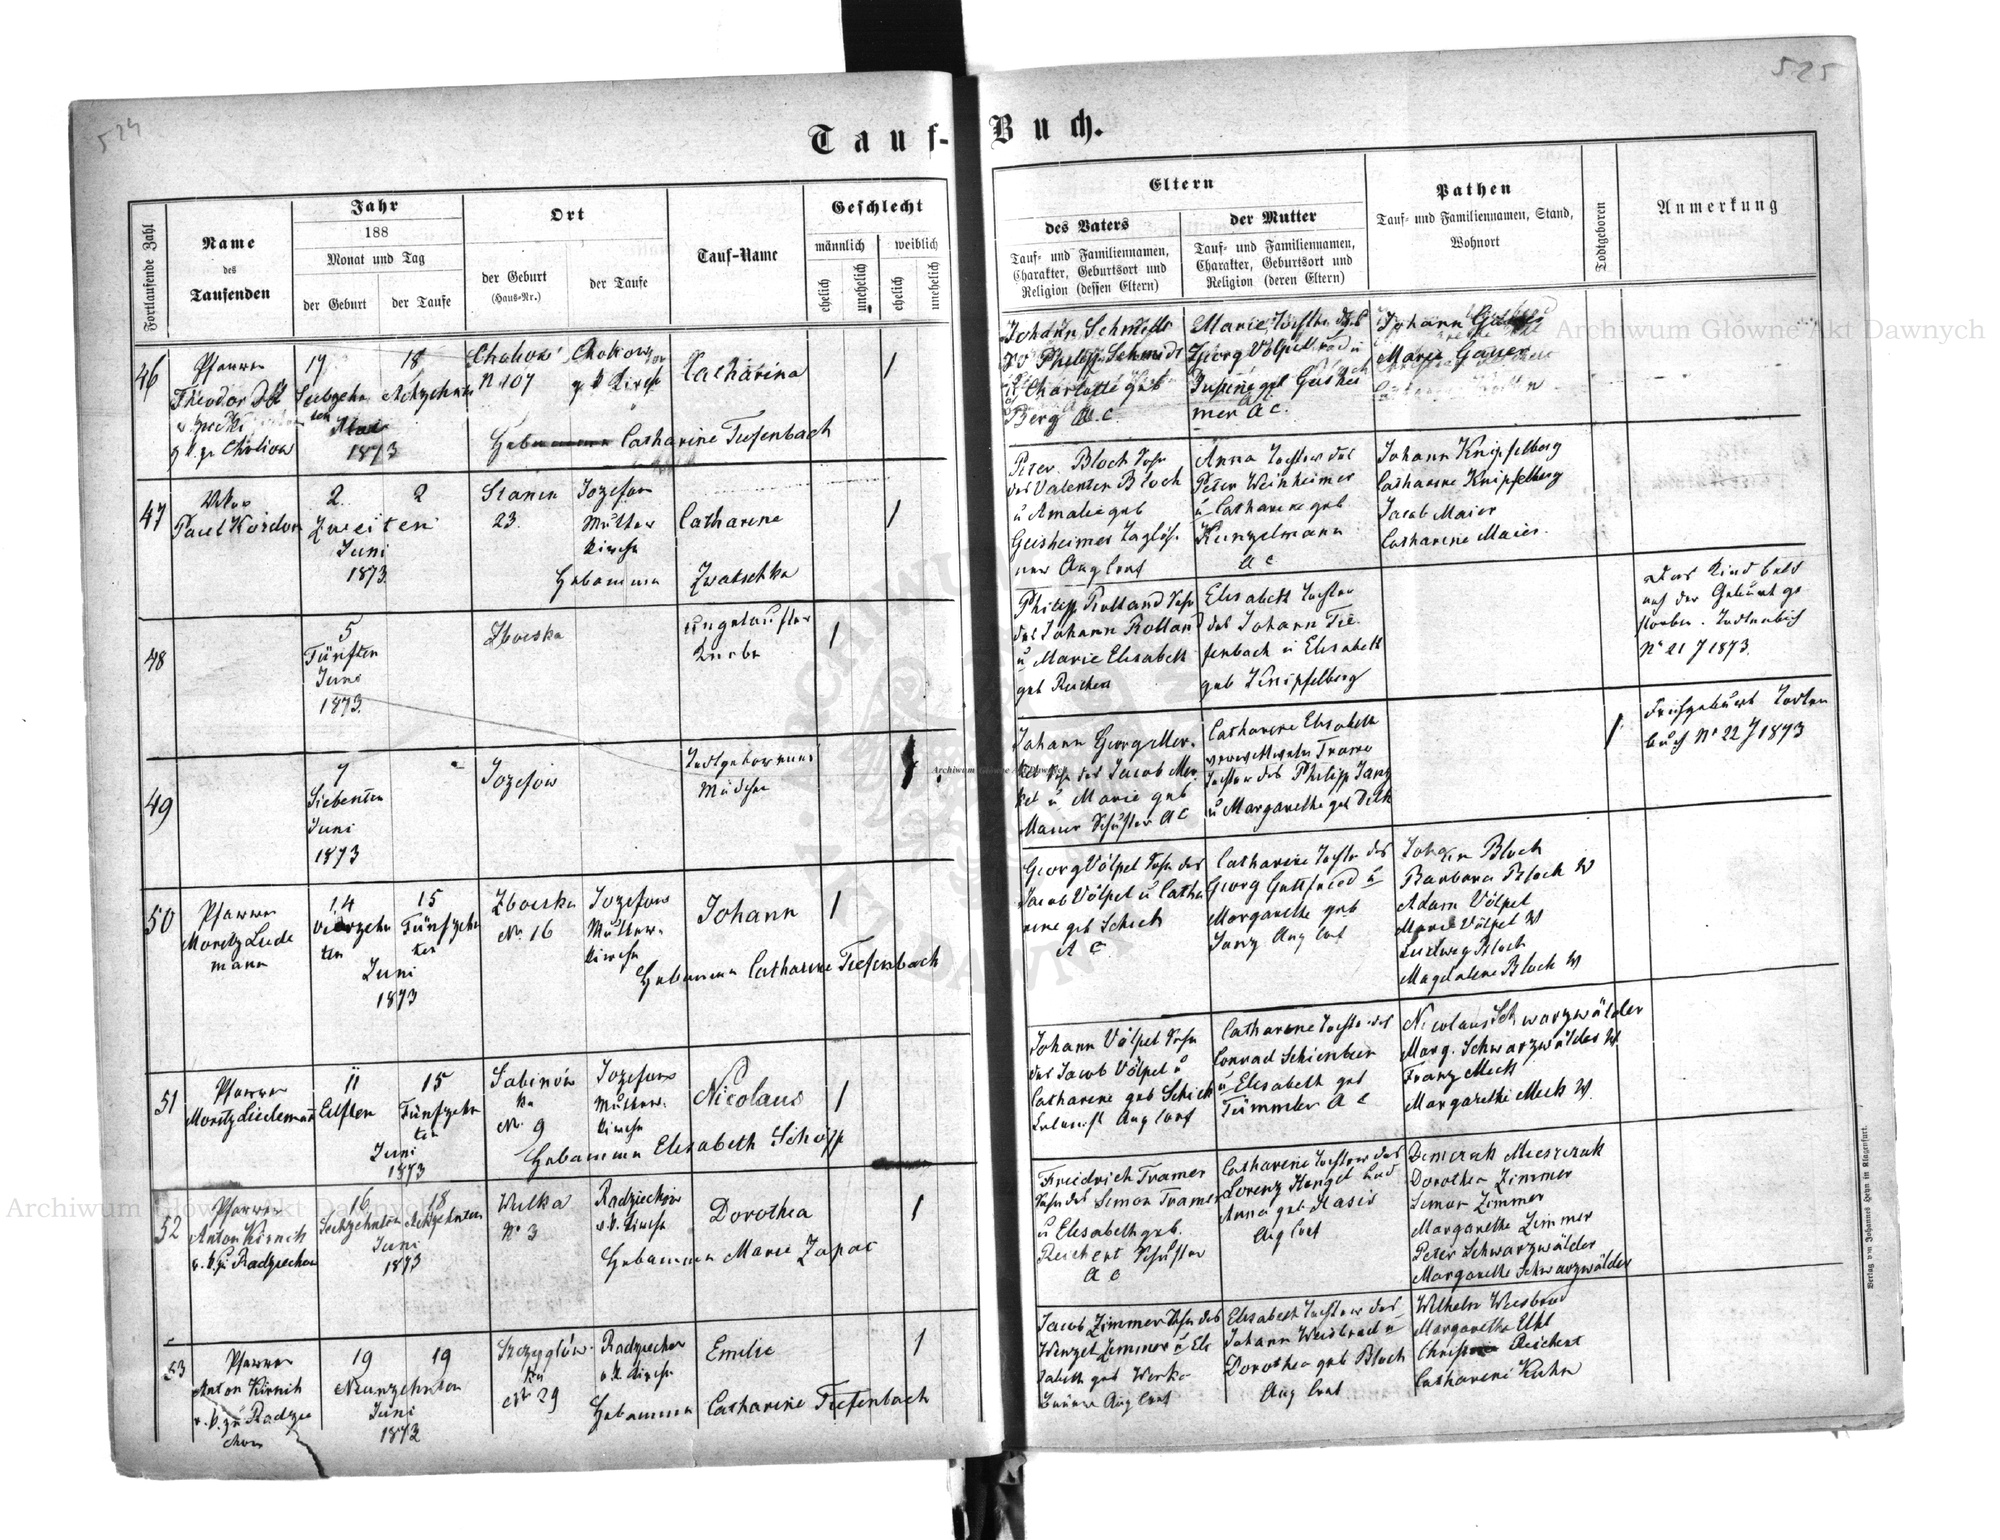 524
525
Tauf-
Buch.
Fortlaufende Zahl
Name
des
Taufenden
Jahr
188
Monat und Tag
der Geburt
der Taufe
Ort
der Geburt
(Haus-Nr.)
der Taufe
Tauf-Name
Geschlecht
männlich
weiblich
ehelich
unehelich
ehelich
unehelich
Eltern
des Vaters
Tauf- und Familiennamen,
Charakter, Geburtsort und
Religion (dessen Eltern)
der Mutter
Tauf- und Familiennamen,
Charakter, Geburtsort und
Religion (deren Eltern)
Pathen
Tauf- und Familiennamen, Stand,
Wohnort
Todtgeboren
Anmerkung
46
Pfarrer
Theodor
17
18
Achtzehnten
Mai
1873
Cholojow
N 107
Catharina
1
Hebamme Catharine Tiefenbach
Johann Schmidt
Philipp Schmidt
Charlotte geb
Berg A. C.
Marie Tochter des
Georg Völpel und
A C.
Johann
Marie Gauer
47
Vikar
Paul Kozdon
2
2
Zweiten
Juni
1873.
Stanin
23.
Jozefow
Mutter
Kirche
Catharine
1
Hebamme
Zwatschka
Peter Bloch Sohn
des Valentin Bloch
u Amalie geb
Geisheimer Taglöh
ner Aug Conf
Anna Tochter des
Peter Weinheimer
u Catharine geb
Kunzelmann
A C
Johann Knipfelberg
Catharine Knipfelberg
Jacob Maier
Catharine Maier.
48
5
Fünften
Juni
1873.
Zboiska
ungetaufter
Knabe
1
Philipp Rolland Sohn
des Johann Rolland
u Marie Elisabeth
geb Reichen
Elisabeth Tochter
des Johann Tie-
fenbach u Elisabeth
geb Knipfelberg
Das Kind bald
nach der Geburt ge
storben. Todtenbuch
N 21 J 1873.
49
7
Siebenten
Juni
1873
Jozefow
Todtgeborenes
Mädchen
Johann Georg Mer-
kel Sohn des Jacob Mer
kel u Marie geb
Mauer Schuster A C
Catharine Elisabeth
verwittwete Tramer
Tochter des Philipp Janz
u Margarethe geb Dilk
1
Frühgeburt Todten
buch N 22 J 1873
50
Pfarrer
Moritz Liede
mann
14
15
Vierzehn
ten
Fünfzehn
ten
Juni
1873
Zboiska
N. 16
Jozefow
Mutter-
Kirche
Johann
1
Hebamme Catharine Tiefenbach
Georg Völpel Sohn des
Jacob Völpel u Catha
rine geb Schick
A C.
Catharine Tochter des
Georg Gottfried u
Margarethe geb
Janz Aug Conf
Johann Bloch
Barbara Bloch W
Adam Völpel
Marie Völpel W
Ludwig Bloch
Magdalena Bloch W
51
Pfarrer
Moritz Liedemann
11
15
Eilften
Fünfzehn
ten
Juni
1873
Sabinów
ka
N. 9
Jozefow
Mutter-
Kirche
Nicolaus
1
Hebamme Elisabeth Schöpp
Johann Völpel Sohn
des Jacob Völpel u
Catharine geb Schick
Aug Conf
Catharine Tochter des
Conrad Schienbein
u Elisabeth geb
Tümmler A C
Nicolaus Schwarzwälder
Marg. Schwarzwälder W.
Franz Meck
Margarethe Meck W.
52
Pfarrer
Anton Kirnich
16
18
Sechzehnten Achtzehnten
Juni
1873
Wulka
N 3
Radziechów
Dorothea
1
Hebamme Marie Zapac
Friedrich Tramer
Sohn des Simon Tramer
u Elisabeth geb.
Reichert Schuster
A C
Catharine Tochter des
Lorenz Hengel und
Anna geb Kasis
Aug Conf
Dorothea Zimmer
Simon Zimmer
Margarethe Zimmer
Peter Schwarzwälder
Margarethe Schwarzwälder
53
Pfarrer
Anton Kirnich
19
19
Neunzehnten
Juni
1873
N 29
Emilie
1
Hebamme Catharine Tiefenbach
Jacob Zimmer Sohn des
Wenzel Zimmer u Eli
sabeth geb
Bauer Aug Conf
Elisabeth Tochter des
Johann Weisbrod u
Dorothea geb Bloch
Aug Conf
Wilhelm Weisbrod
Margaretha
Reichert
Catharine Kuhn
Verlag von Johannes Heyn in Klagenfurt.
Archiwum Główne Akt Dawnych
Archiwum Główne Akt Dawnych
Archiwum Główne Akt Dawnych